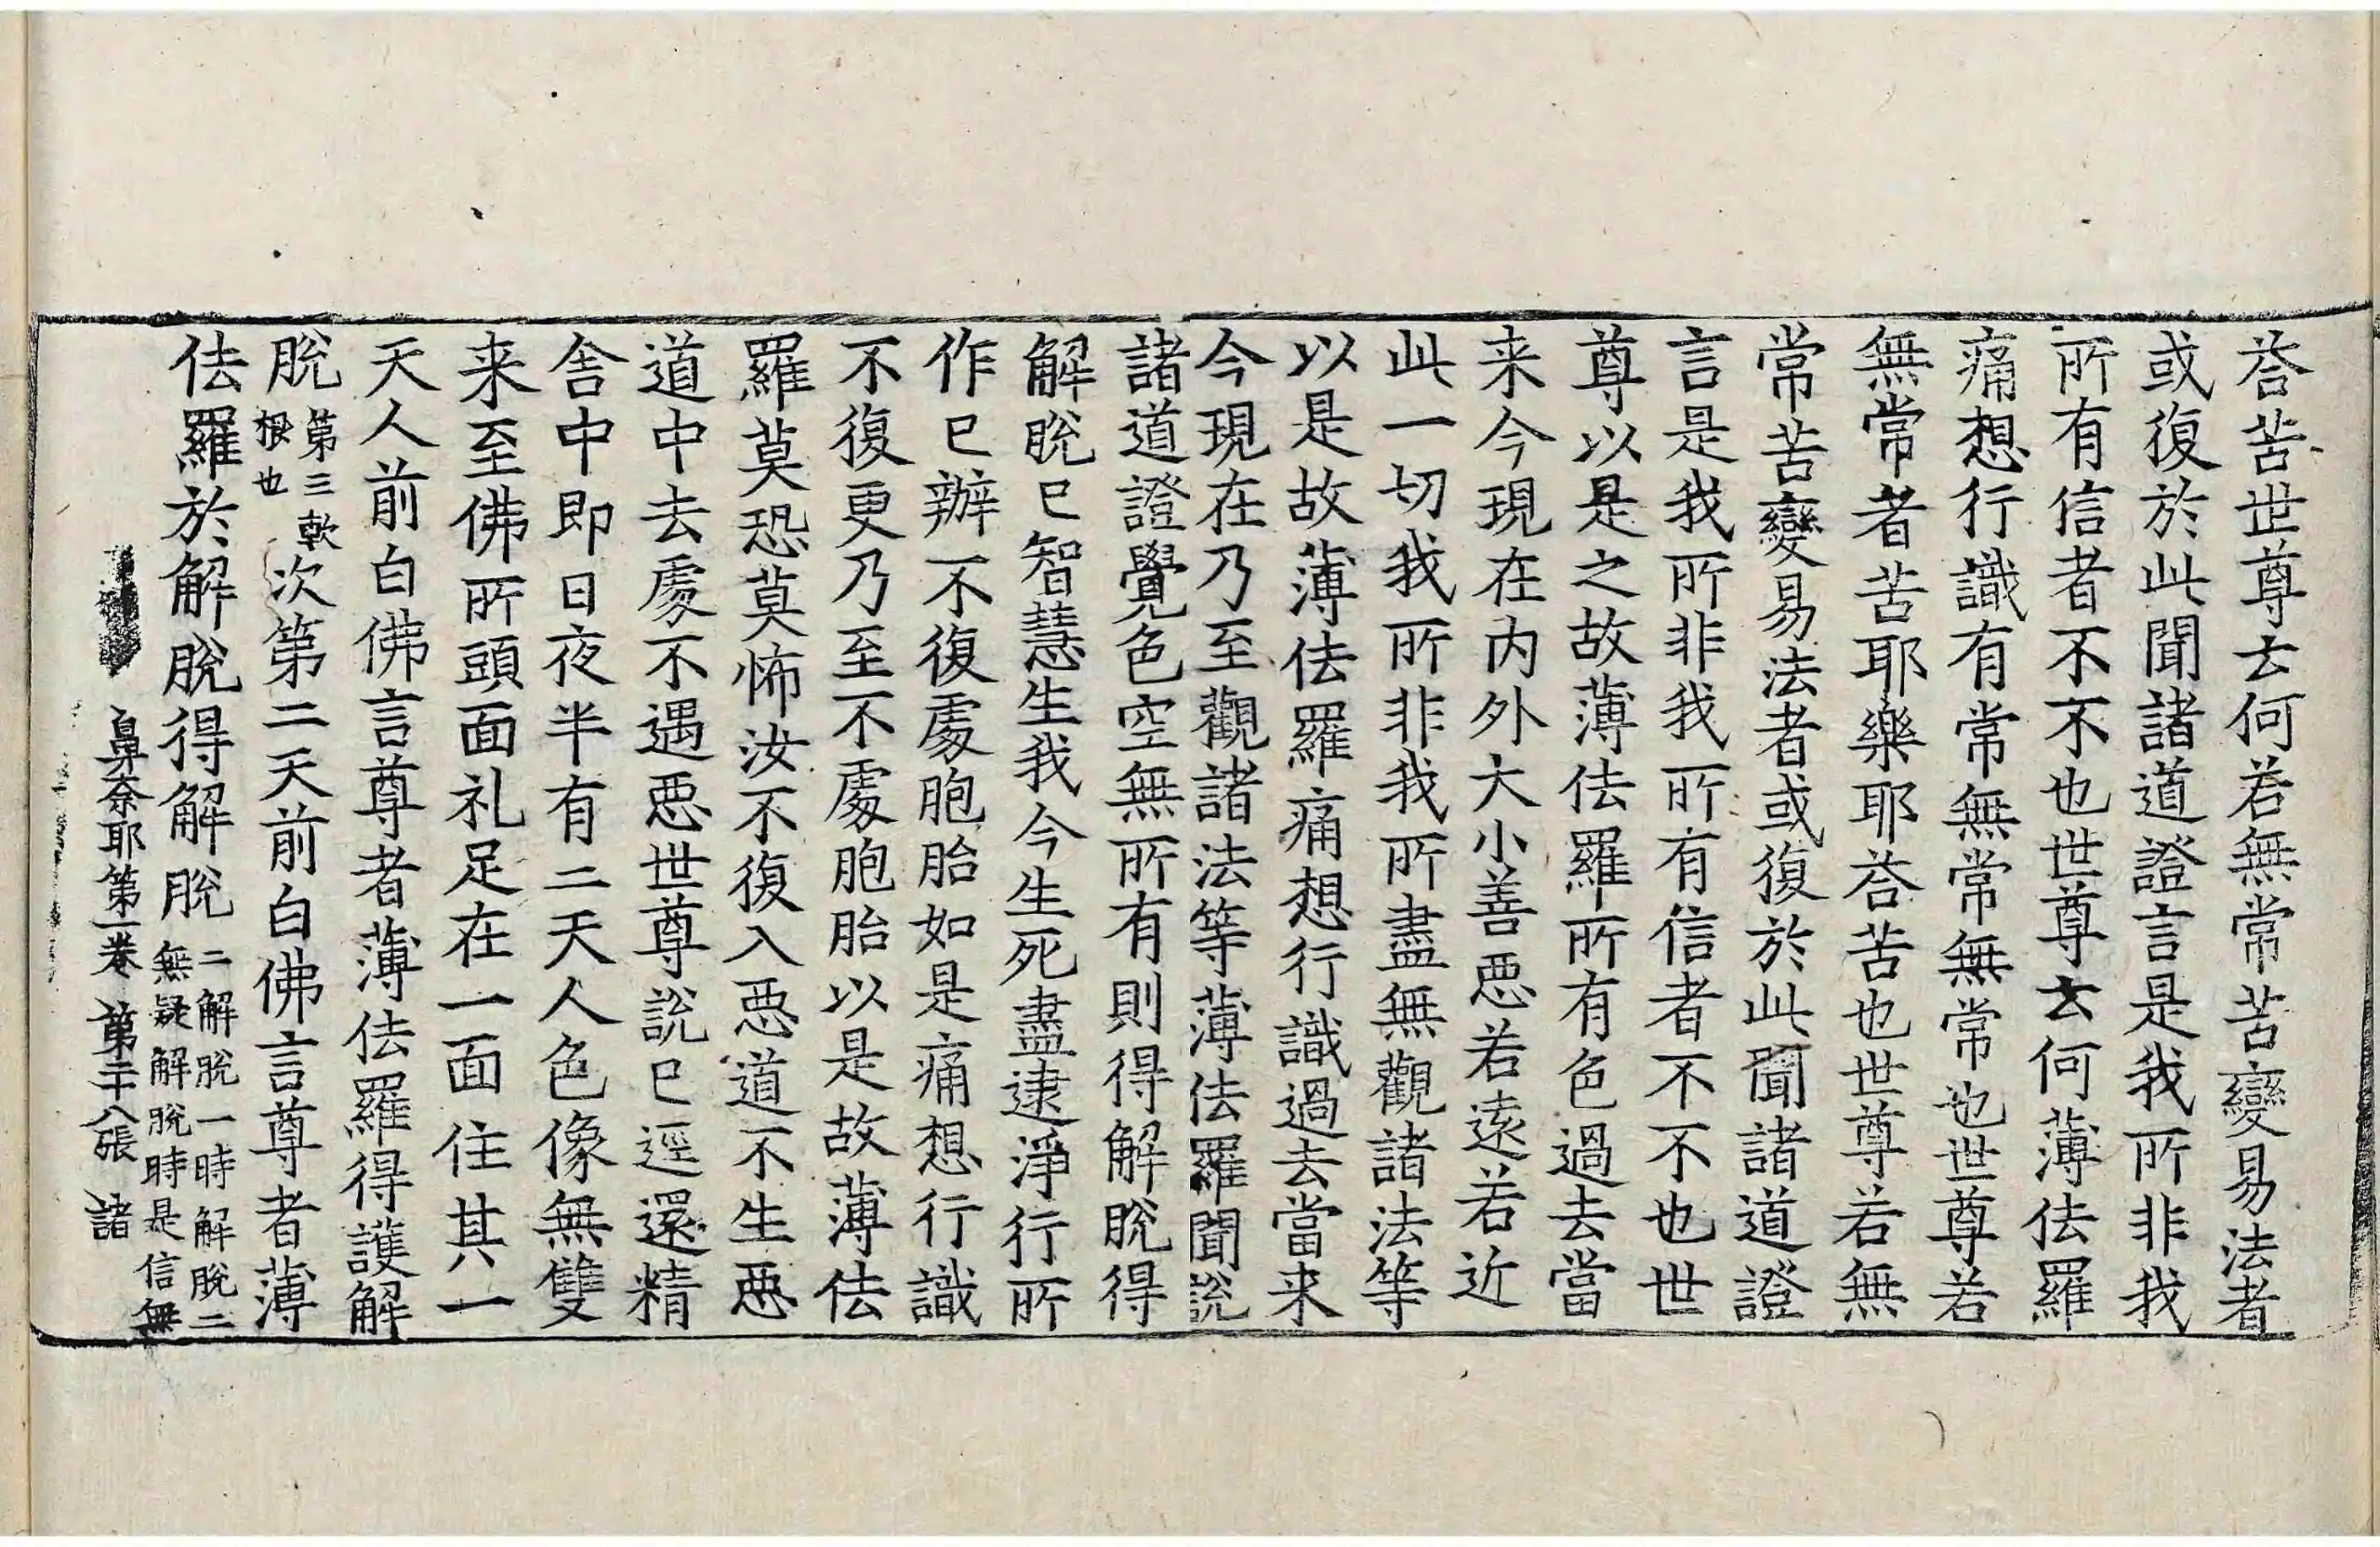 荅苦世尊云何若無常苦變易法者
或復於此聞諸道證言是我所非我
所有信者不不也世尊云何薄佉羅
痛想行識有常無常無常也世尊若
無常者苦耶樂耶荅苦也世尊若無
常苦變易法者或復於此聞諸道證
言是我所非我所有信者不不也世
尊以是之故薄佉羅所有色過去當
来今現在内外大小善惡若遠若近
此一切我所非我所盡無觀諸法等
以是故薄佉羅痛想行識過去當来
今現在乃至觀諸法等薄佉羅聞說
諸道證覺色空無所有則得解脫得
解脫已智慧生我今生死盡逮淨行所
作已辦不復處胞胎如是痛想行識
不復更乃至不處胞胎以是故薄佉
羅莫恐莫怖汝不復入惡道不生惡
道中去處不遇惡世尊說已逕還精
舍中即日夜半有二天人色像無雙
来至佛所頭面礼足在一面住其一
天人前白佛言尊者薄佉羅得護解
脫第三軟根也次第二天前白佛言尊者薄
佉羅於解脫得解脫二解脫一時解脫二無疑解脫時是信無
鼻奈耶第一卷 第二十八張 諸